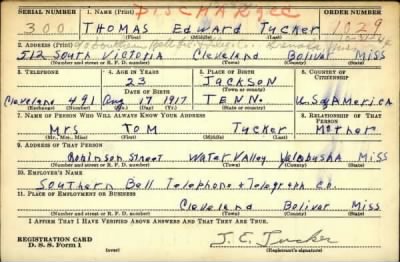 SERIAL NUMBER 1. NAME (Print) DISCHARGED ORDER NUMBER
300 THOMAS Edward Tucker 1029
(First) (Middle) (Last)
2. ADDRESS (Print)
512 South Victoria Cleveland Bolivar Miss
(Number and street or R. F. D. number) (Town) (County) (State)
3. TELEPHONE 4. AGE IN YEARS 5. PLACE OF BIRTH 6. COUNTRY OF CITIZENSHIP
23 Jackson
DATE OF BIRTH (Town or county)
Cleveland 491 Aug 17 1917 TENN. U.S. America
(Exchange) (Number) (Mo.) (Day) (Yr.) (State or country)
7. NAME OF PERSON WHO WILL ALWAYS KNOW YOUR ADDRESS 8. RELATIONSHIP OF THAT PERSON
Mrs Tom Tucker Mother
(Mr., Mrs., Miss) (First) (Middle) (Last)
9. ADDRESS OF THAT PERSON
Robinson Street Water Valley Yalobusha Miss
(Number and street or R. F. D. number) (Town) (County) (State)
10. EMPLOYER'S NAME
Southern Bell Telephone & Telegraph Co.
11. PLACE OF EMPLOYMENT OR BUSINESS
Cleveland Bolivar Miss
(Number and street or R. F. D. number) (Town) (County) (State)
I AFFIRM THAT I HAVE VERIFIED ABOVE ANSWERS AND THAT THEY ARE TRUE.
REGISTRATION CARD
D. S. S. Form 1 (over) (Registrant's signature)